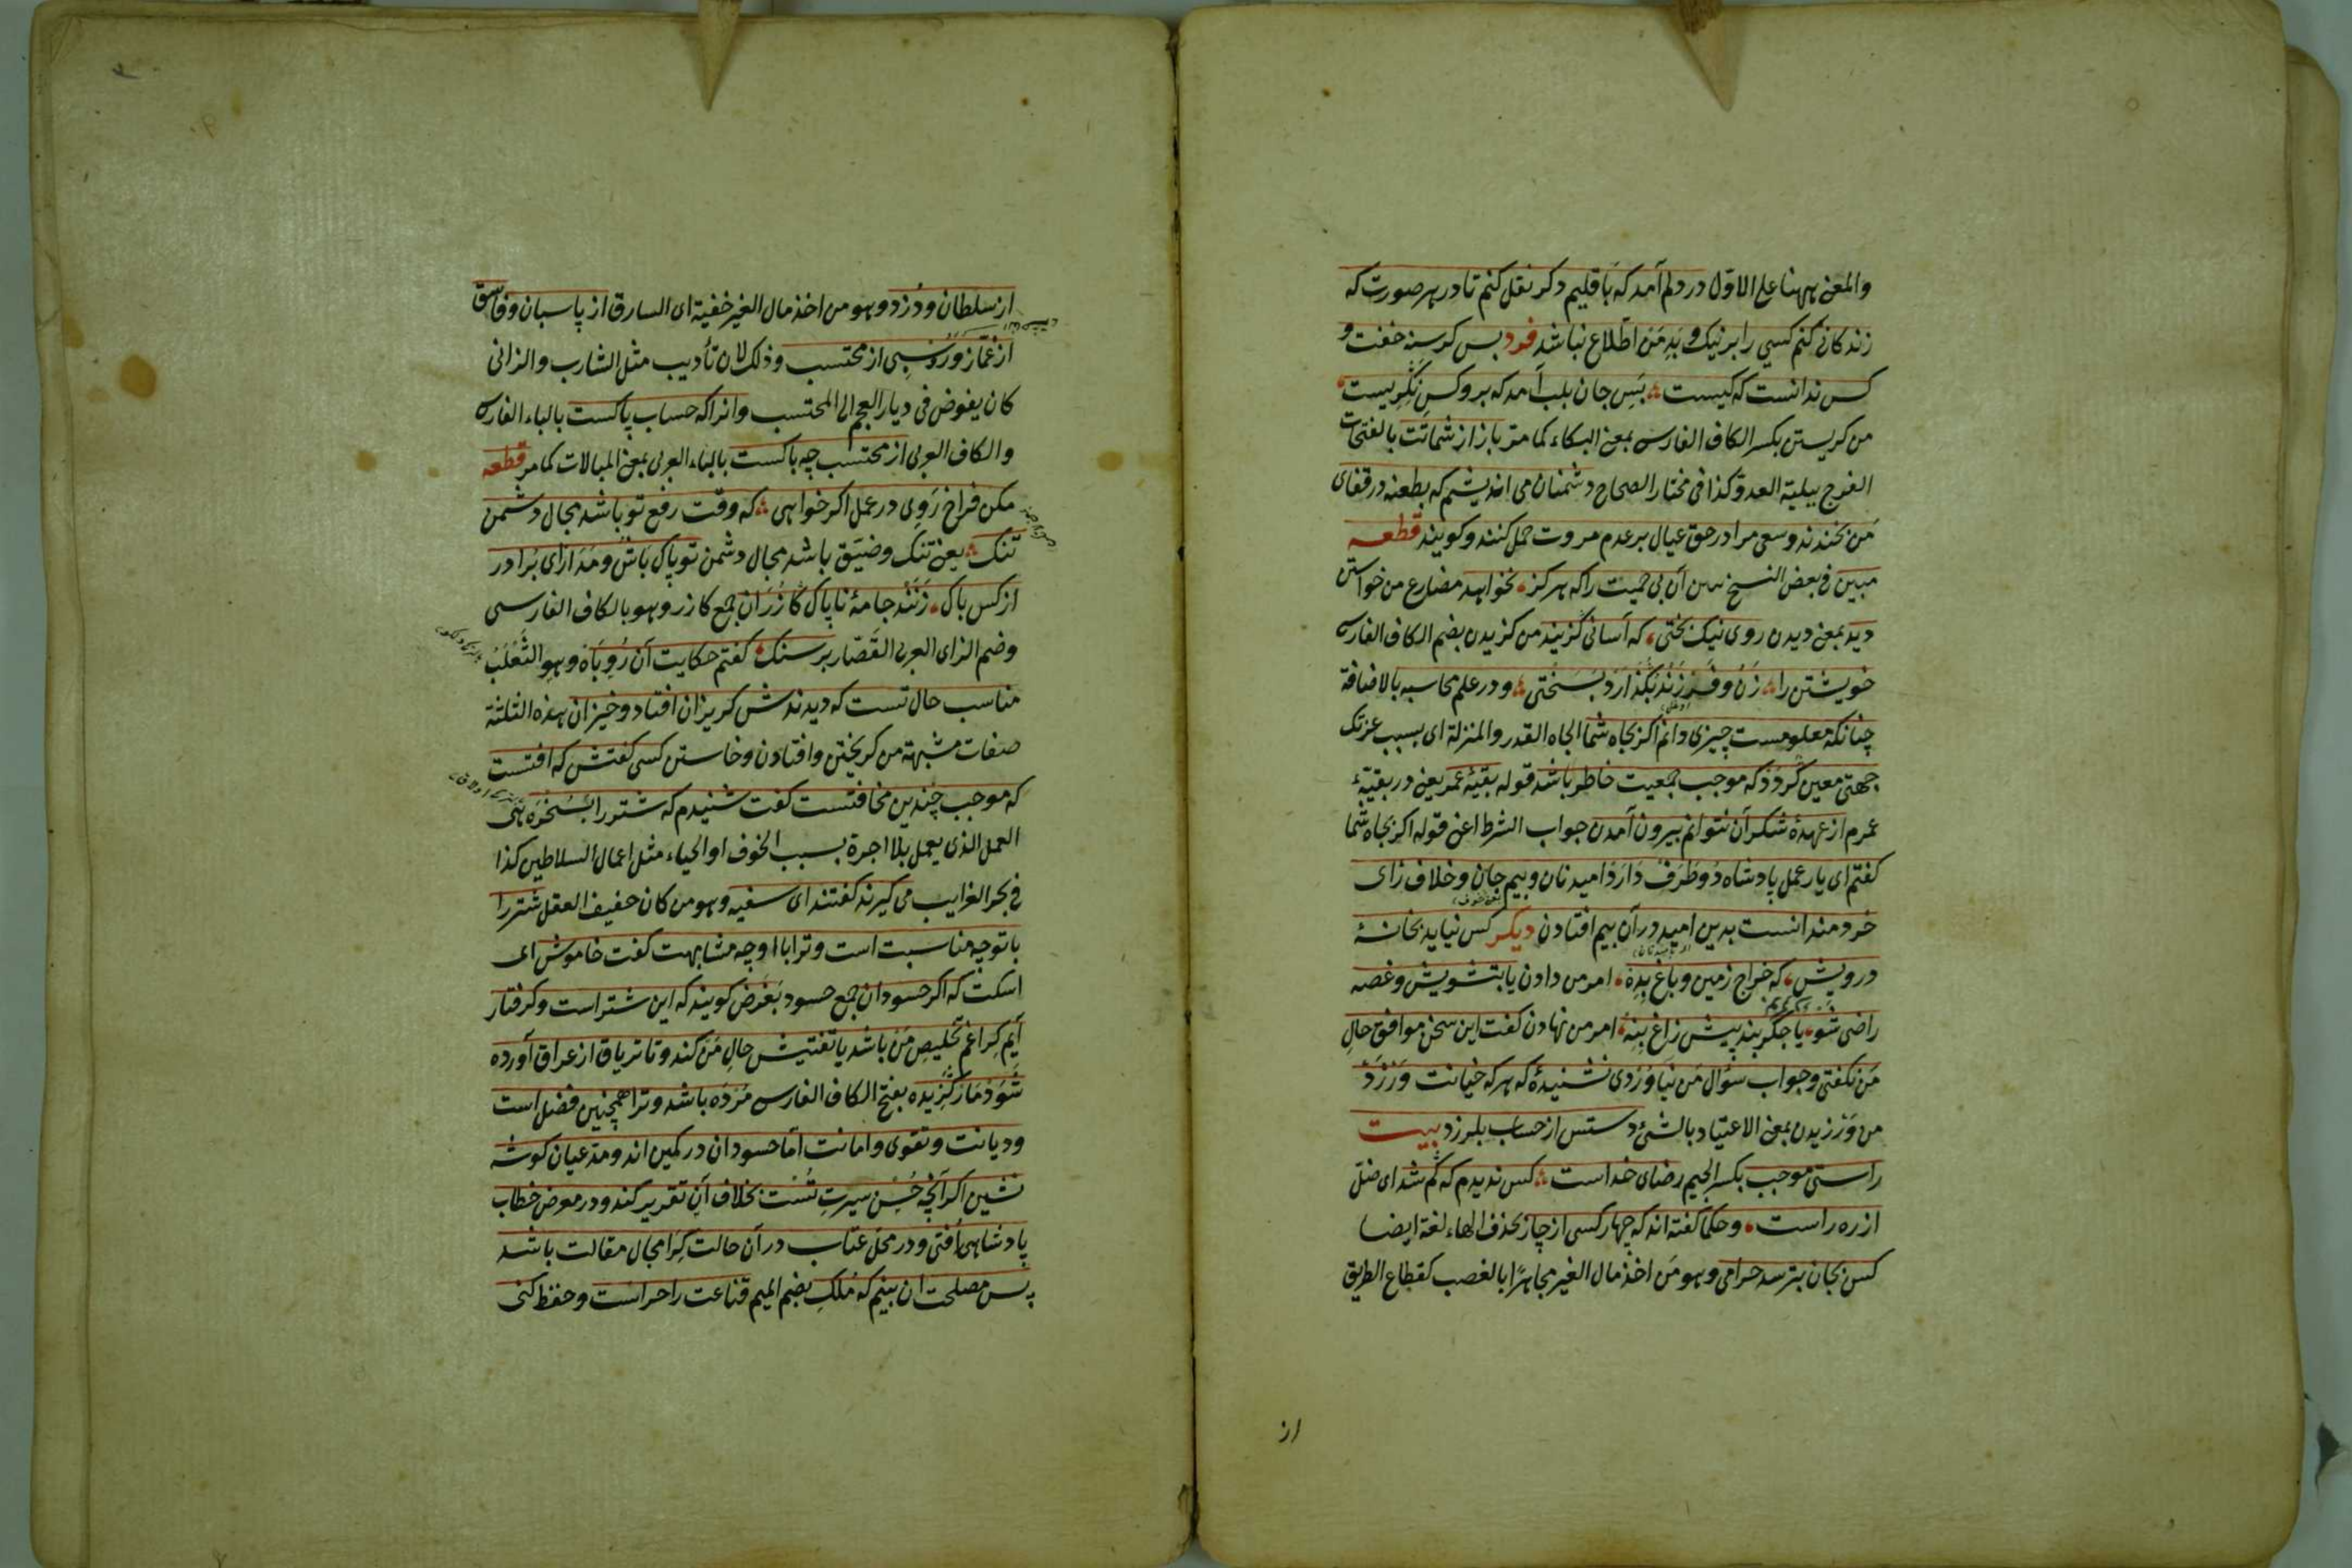 والمعنی ههنا علی الاوّل در دلم آمد که باقلیم دکر نقل کنم تا در هر صورت که
زندکانی کنم کسی را بر نیک و بد من اطّلاع نباشد فرد بس کرسنه خفت و
کس ندانست که کیست بس جان بلب آمد که برو کس نکریست
من کریستن بکسر الکاف الفارسی بمعنی البکاء کما مرّ باز از شماتت بالفتحات
الفرح ببلیة العدوّ کذا فی مختار الصحاح دشمنان می اندیشم که بطعنه در قفای
من بخندند و سعی مرا در حق عیال بر عدم مروت حمل کنند و کویند قطعه
مبین فی بعض النسخ آن بی حمیت را که هرکز نخواهد مضارع من خواستن
دید بمعنی دیدن روی نیک بختی که آسانی کزیند من کزیدن بضم الکاف الفارسی
خویشتن را زن و فرزند بکذارد بسختی و در علم محاسبه بالاضافة
چنانکه معلومست چیزی دانم اکر بجاه شما الجاه القدر والمنزلة ای بسبب عزتک
جهتی معین کردد که موجب جمعیت خاطر باشد قوله بقیّۀ عمر یعنی در بقیّۀ
عمرم از عهدۀ شکر آن نتوانم بیرون آمدن جواب الشرط اعنی قوله اکر بجاه شما
کفتم ای یار عمل پادشاه دو طرف دارد امید نان و بیم جان و خلاف رای
خردمندانست بدین امید در آن بیم افتادن دیکر کس نیاید بخانۀ
درویش که خراج زمین و باغ بده امر من دادن یا بتشویش و غصه
راضی شو یا جکربند پیش زاغ بنه امر من نهادن کفت این سخن موافق حال
من نکفتی و جواب سؤال من نیاوردی نشنیدۀ که هر که خیانت ورزد
من ورزیدن بمعنی الاعتیاد بالشیٔ دستش از حساب بلرزد بیت
راستی موجب بکسر الجیم رضای خداست کس ندیدم که کم شد ای ضلّ
از ره راست و حکما کفته اند که چهار کس از چار بحذف الهاء لغة ایضا
کس بجان بترسد حرامی و هو من اخذ مال الغیر مجاهرًا بالغصب کقطاع الطریق
از
از سلطان و دزد و هو من اخذ مال الغیر خفیة ای السارق از پاسبان و فاسق
از غمّاز و روسپی از محتسب و ذلک لان تأدیب مثل الشارب و الزانی
کان یفوض فی دیار العجم الی المحتسب و انرا که حساب پاکست بالباء الفارسی
و الکاف العربی از محتسب چه باکست بالباء العربی بمعنی المبالات کما مر قطعه
مکن فراخ روی در عمل اکر خواهی که وقت رفع تو باشد مجال دشمن
تنک یعنی تنک و ضیّق باشد مجال دشمن تو پاک باش و مدار ای برادر
از کس باک زنند جامۀ ناپاک کازران جمع کازر و هو بالکاف الفارسی
و ضم الزای العربی القصّار بر سنک کفتم حکایت آن روباه و هو الثعلب
مناسب حال تست که دیدندش کریزان افتاد و خیزان هذه الثلثة
صفات مشبهة من کریختن و افتادن و خاستن کسی کفتش که افتست
که موجب چندین مخافتست کفت شنیدم که شتر را بسخره هی
العمل الذی یعمل بلا اجرة بسبب الخوف او الحیاء مثل اعمال السلاطین کذا
فی بحر الغرایب می کیرند کفتند ای سفیه و هو من کان خفیف العقل شتر را
با تو چه مناسبت است و ترا با او چه مشابهت کفت خاموش ای
اسکت که اکر حسودان جمع حسود بغرض کویند که این شتر است و کرفتار
آیم کرا غم تخلیص من باشد یا تفتیش حال من کند و تا تریاق از عراق آورده
شود مار کزیده بفتح الکاف الفارسی مرده باشد و ترا همچنین فضل است
و دیانت و تقوی و امانت اما حسودان در کمین اند و مدعیان کوشه
نشین اکر آنچه حسن سیرت تست بخلاف آن تقریر کند و در معرض خطاب
پادشاهی افتی و در محل عتاب در آن حالت کرا مجال مقالت باشد
پس مصلحت ان بینم که ملک بضم المیم قناعت را حراست و حفظ کنی